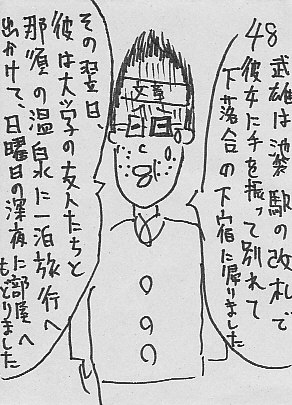 48
武雄は池袋駅の改札で
彼女に手を振って別れて
下落合の下宿に帰りました
その翌日、
彼は大学の友人たちと
那須の温泉に一泊旅行へ
出かけて、日曜日の深夜に部屋へ
もどりました